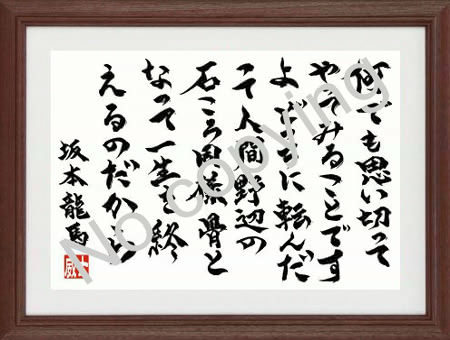 何でも思い切って
やってみることです
よどっちに転んだ
って人間野辺の
石ころ同様骨と
なって一生を終
えるのだから
坂本龍馬
No copying